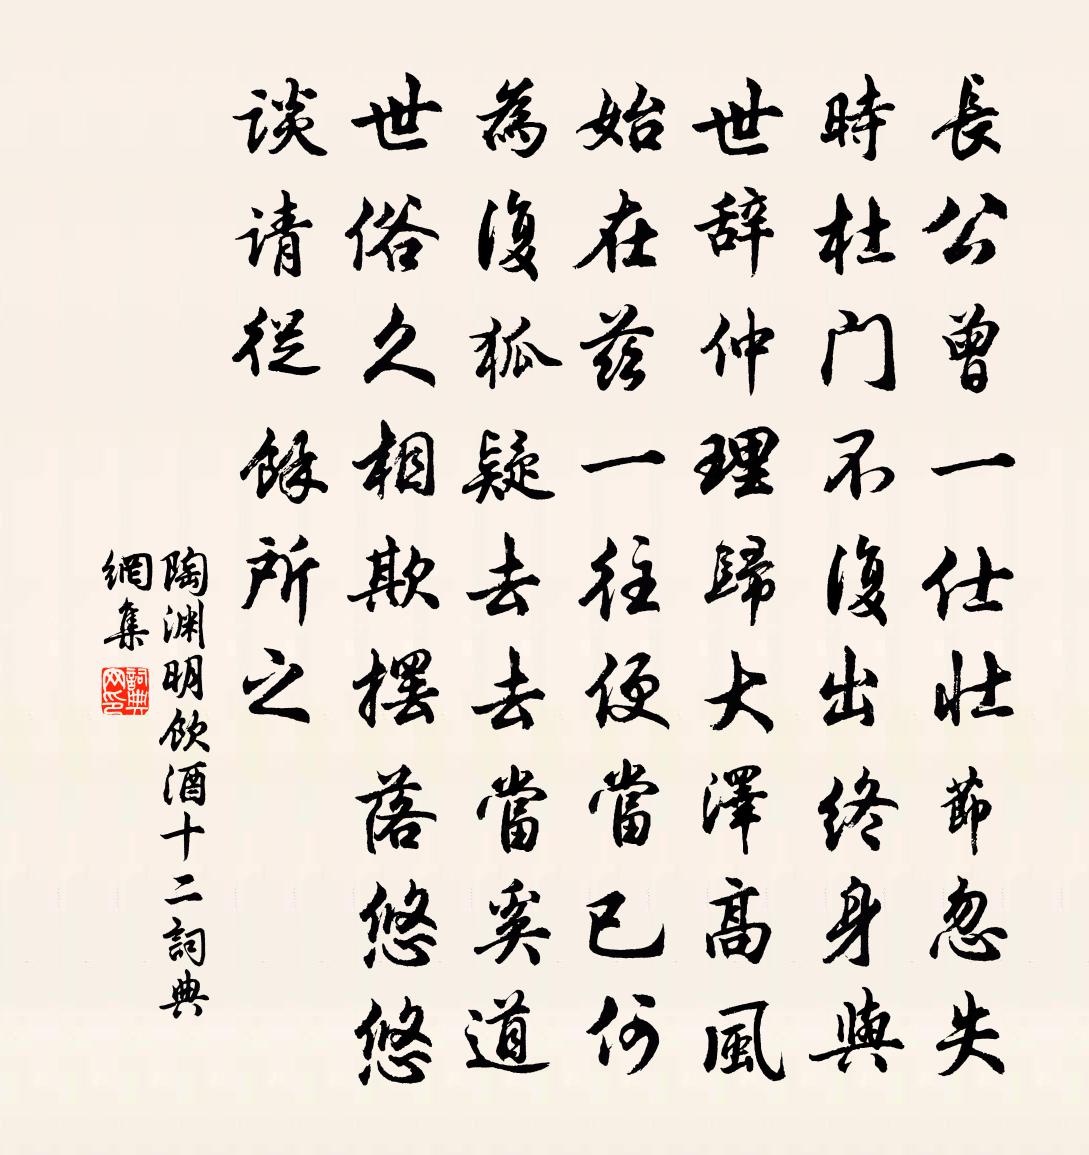 長公曾一仕壯節忽失
時杜门不復出終身與
世辞仲理歸大澤高風
始在茲一往便當已何
為復狐疑去去當奚道
世俗久相欺擺落悠悠
谈请從餘所之
陶渊明飲酒十二詞典
網集
詞典网印